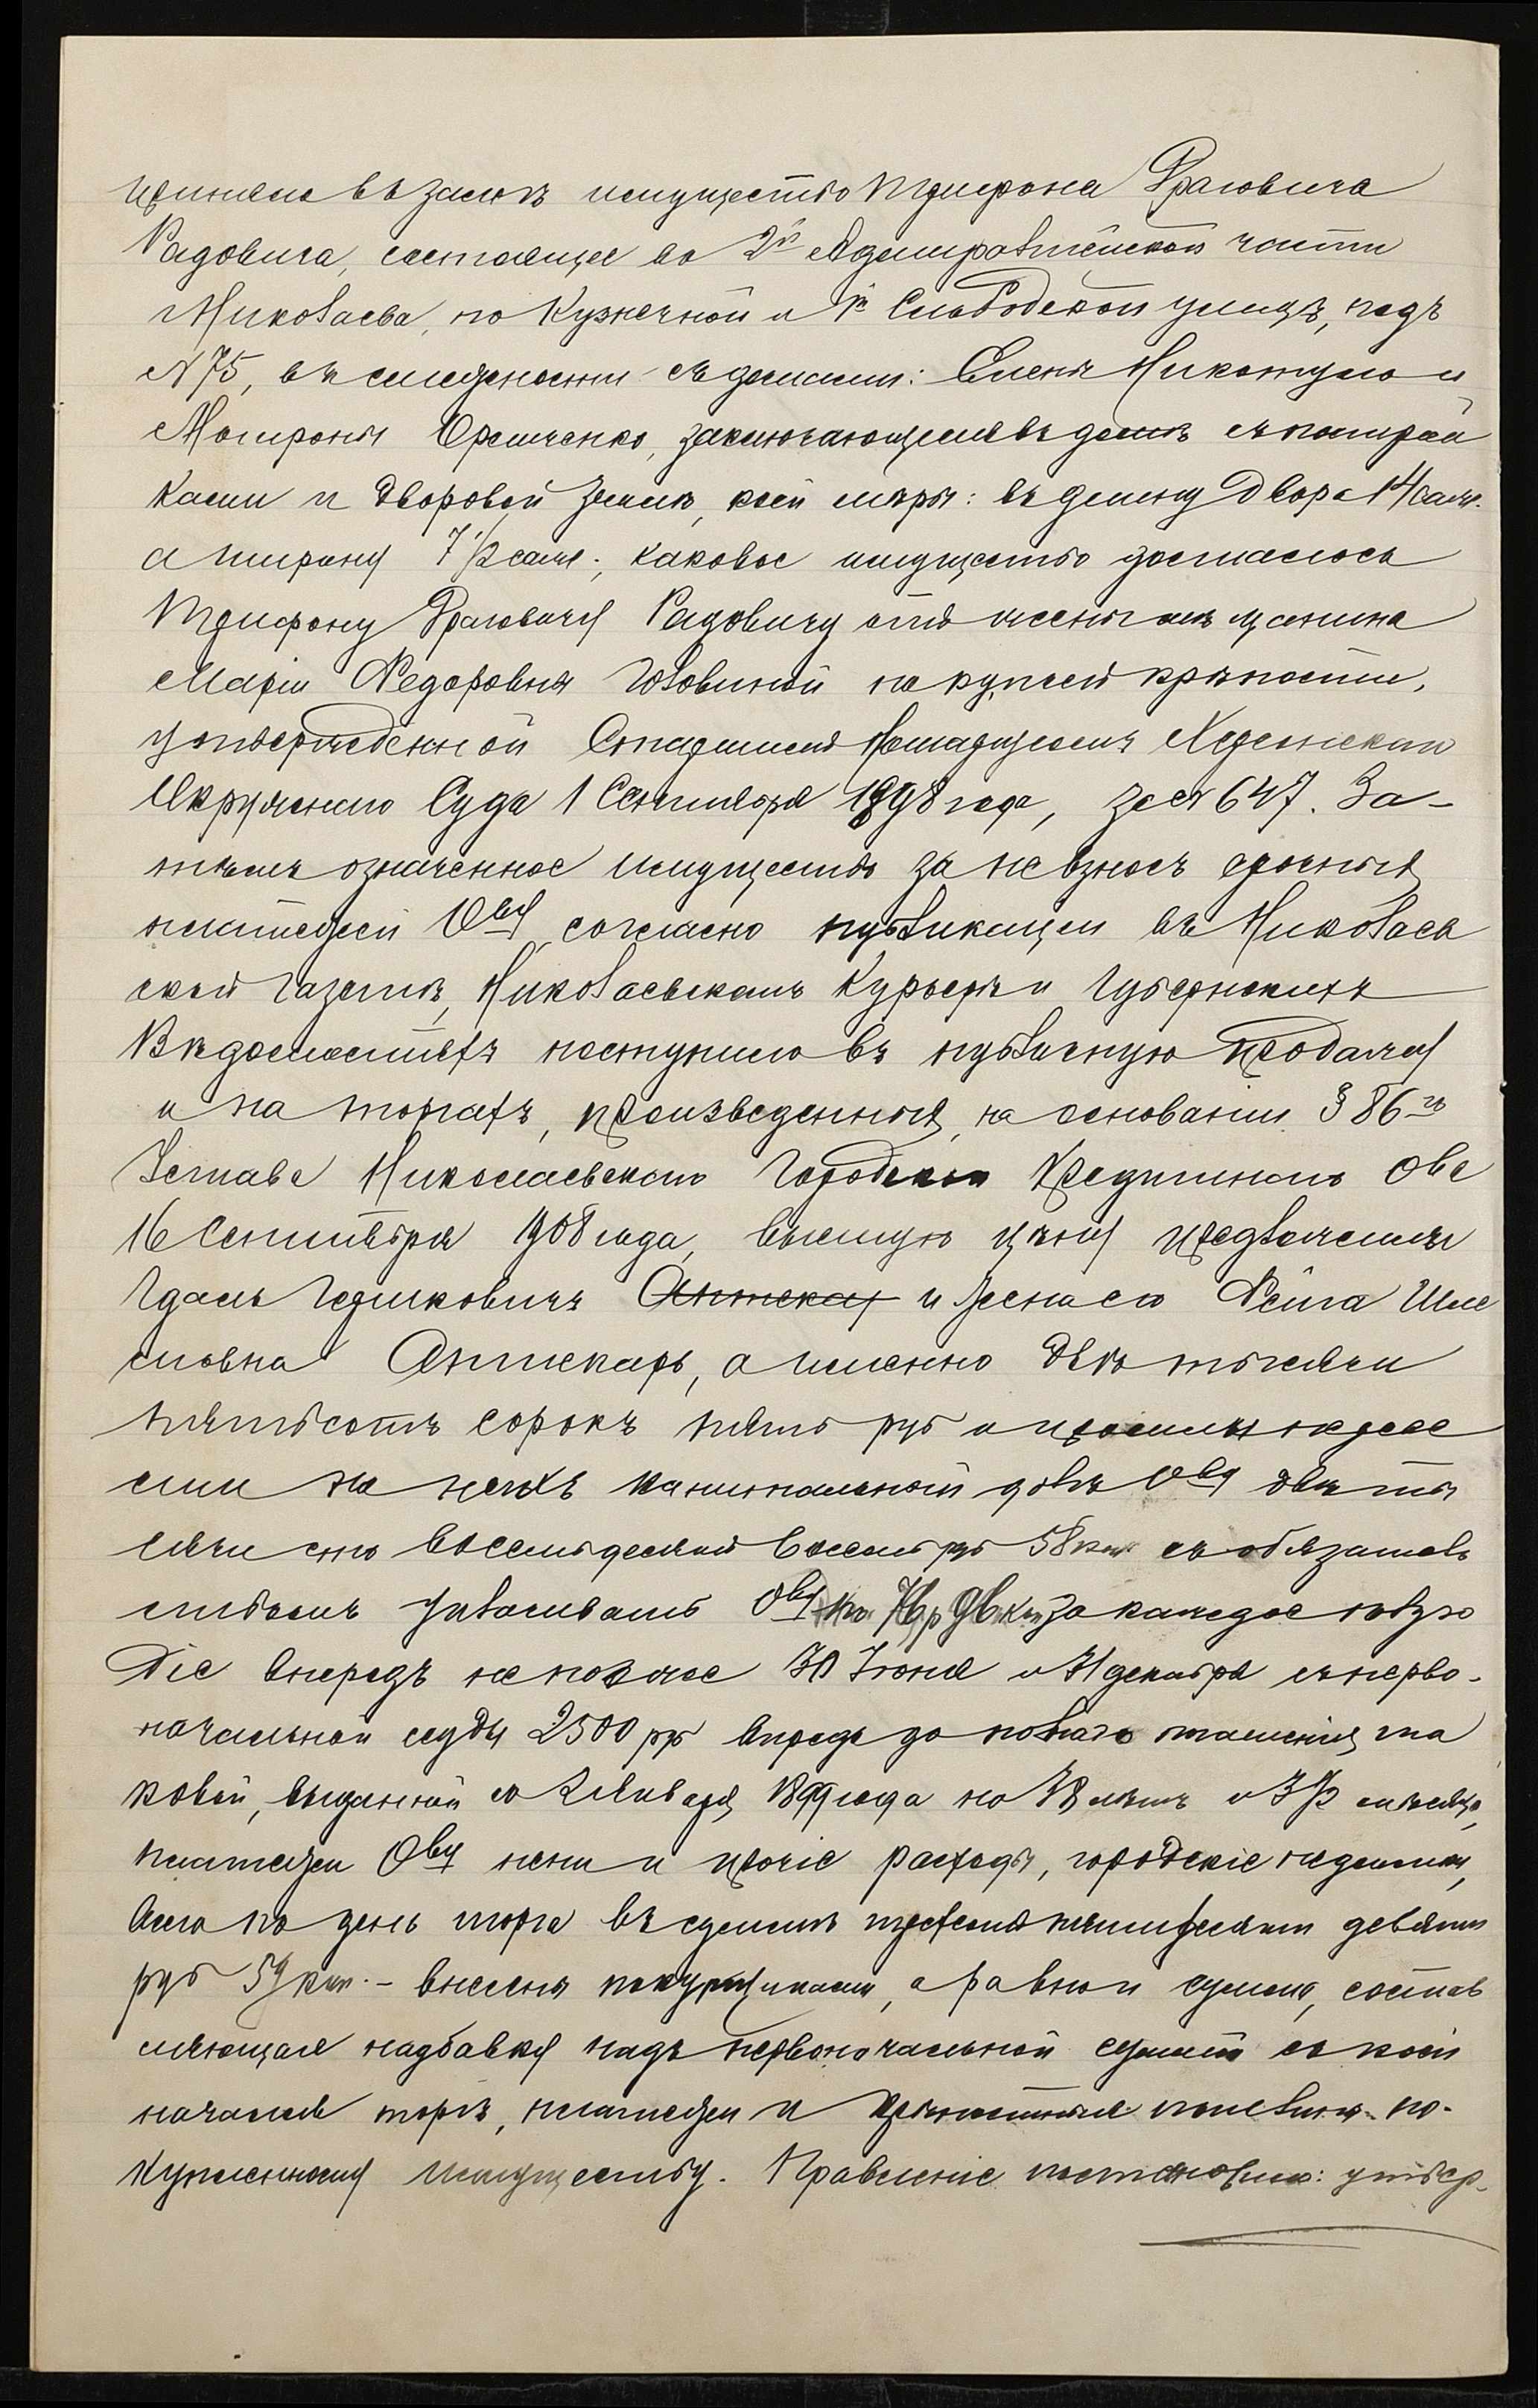 принято въ залогъ имущество Трифона Драговича
Радовича, состоящее во 2й Адмиралтейской части
Николаева, по Кузнечной и 1й Слободской улицѣ, подъ
№ 75, въ смежности съ домами: Елены Никотуло и
Матроны Орешченко, заключающееся въ домѣ съ построй
ками и дворовой землѣ, коей мѣры: въ длину двора 14 саж.
а ширину 7 1/2 саж.; каковое имущество досталось
Трифону Драговичу Радовичу отъ жены мѣщанина
Маріи Федоровны по купчей крѣпости,
утвержденной Старшимъ Нотаріусомъ Херсонскаго
Окружнаго Суда 1 Сентября 1898 года, за № 647. За-
тѣмъ означенное имущество за невзносъ срочныхъ
платежей Ову, согласно публикаціи въ Николаев
ской Газетѣ, Николаевскомъ Курьерѣ и Губернскихъ
Вѣдомостяхъ поступило въ публичную продажу
и на торгахъ, произведенныхъ, на основаніи § 86го
Устава Николаевскаго Городского Кредитнаго Ова
16 Сентября 1908 года, высшую цѣну предложили
Гдаль Гершковичъ Аптекар и жена его Фейга Шле
мовна Аптекарь, а именно двѣ тысячи
пятьсотъ сорокъ пять руб и просили перевес
ти на нихъ капитальный долгъ Ову двѣ ты
сячи сто восемьдесятъ восемь руб 58 коп съ обязатель
ствомъ уплачивать Ову по за каждое полуго
діе впередъ не позже 30 Іюня и 31 декабря съ перво-
начальной ссуды 2500 руб впредь до полнаго погашенія та
ковой, выданной со 2 Января 1899 года на мѣсяца,
платежи Ову пени и прочіе расходы, городскіе недоимки,
всего по день торга въ суммѣ триста пятьдесятъ девять
руб 59 коп. - внесены покупщиками, а равно и сумма, состав
ляющая надбавку надъ первоначальной суммой съ коей
начался торгъ, платежи и крѣпостныя пошлины по-
купленному имуществу. Правленіе постановило: утвер-